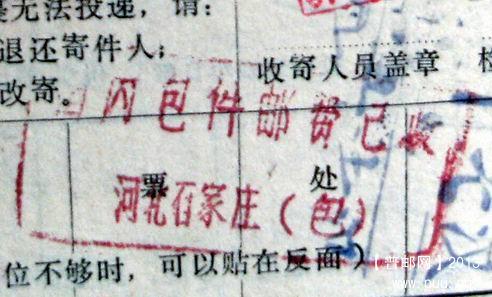 无法投递，请：
退还寄件人；
收寄人员盖章
改寄。
内包件邮资已收
票 处
河北石家庄（包）
位不够时，可以贴在反面）
【晋邮网】2013